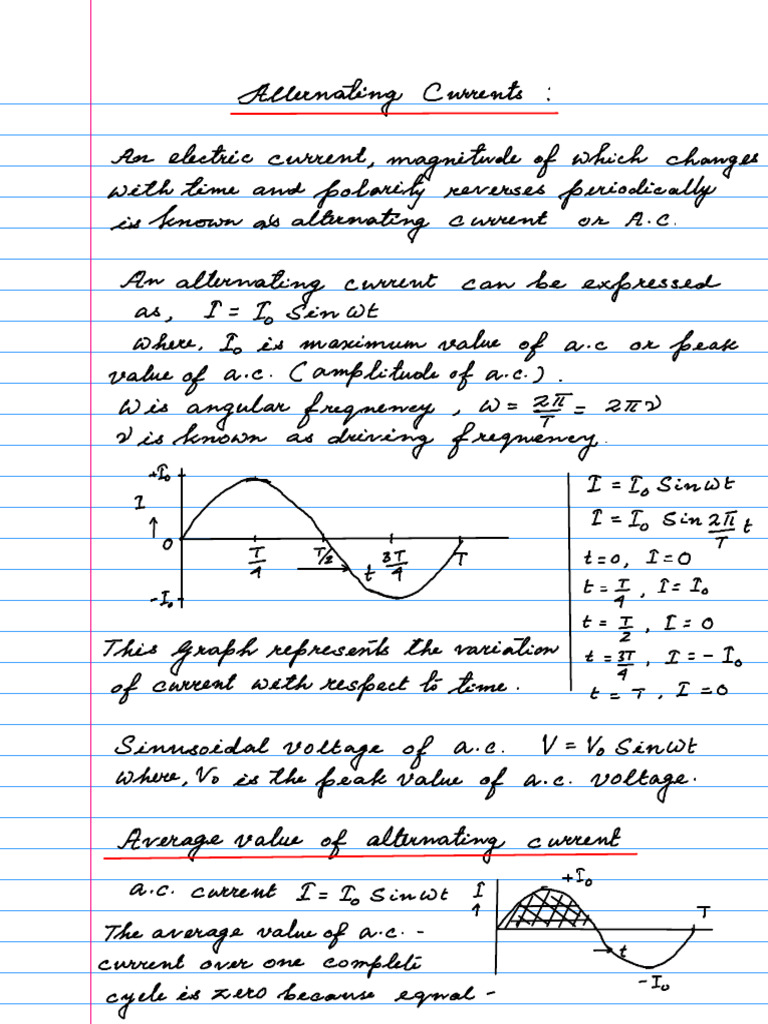 Alternating Currents :
An electric current, magnitude of which changes
with time and polarity reverses periodically
is known as alternating current or A.C.
An alternating current can be expressed
as, I = I₀ Sin ωt
where, I₀ is maximum value of a.c or peak
value of a.c. (amplitude of a.c.).
ω is angular frequency, ω = 2π/T = 2πν
ν is known as driving frequency.
+I₀
I
↑
O
T/4
T/2
t
3T/4
T
-I₀
I = I₀ Sin ωt
I = I₀ Sin 2π/T t
t=0, I=0
t = T/4, I = I₀
t = T/2, I = 0
t = 3T/4, I = - I₀
t = T, I = 0
This graph represents the variation
of current with respect to time.
Sinusoidal voltage of a.c. V = V₀ Sin ωt
where, V₀ is the peak value of a.c. voltage.
Average value of alternating current
a.c. current I = I₀ Sin ωt
The average value of a.c. -
current over one complete
cycle is zero because equal -
+I₀
I
↑
T
→ t
-I₀